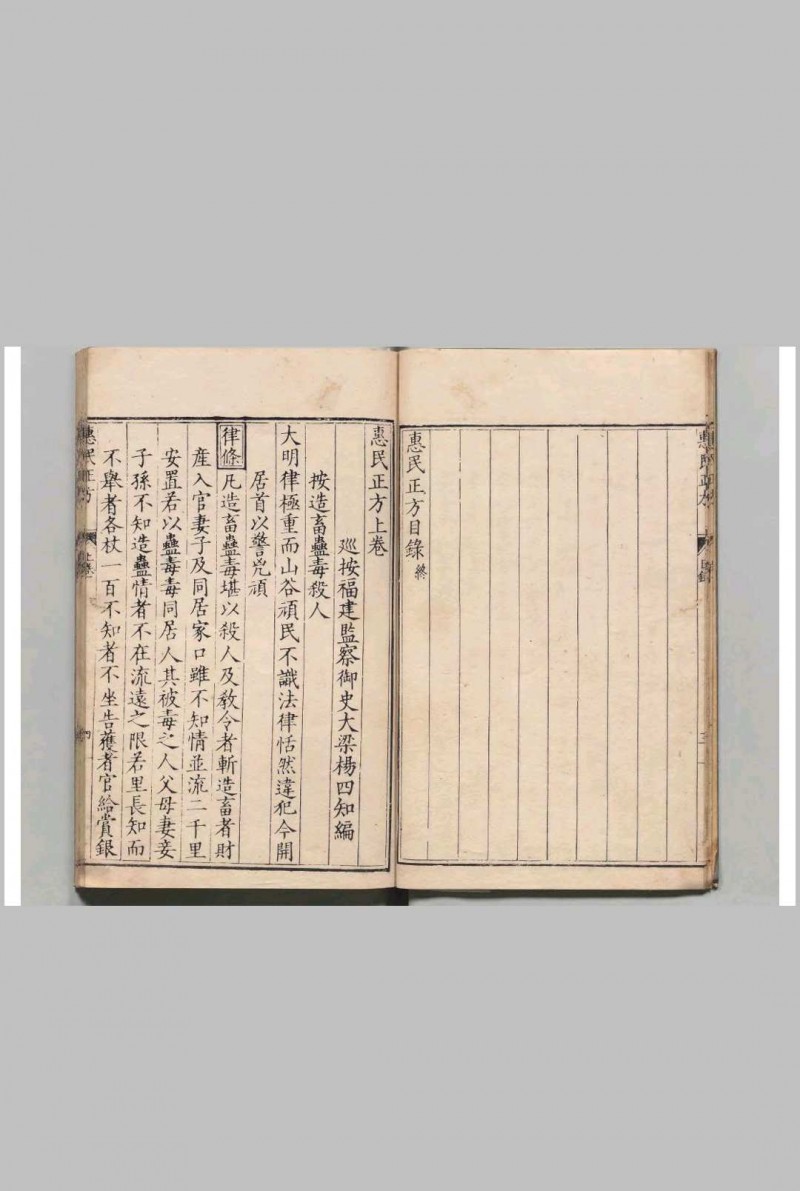 惠民正方目錄終
惠民正方上卷
巡按福建監察御史大梁楊四知編
按造畜蠱毒殺人
大明律極重而山谷頑民不識法律恬然違犯今開
居首以警兇頑
律條凡造畜蠱毒堪以殺人及教令者斬造畜者財
產入官妻子及同居家口雖不知情並流二千里
安置若以蠱毒毒同居人其被毒之人父母妻妾
子孫不知造蠱情者不在流遠之限若里長知而
不舉者各杖一百不知者不坐告獲者官給賞銀
惠民正方
上卷